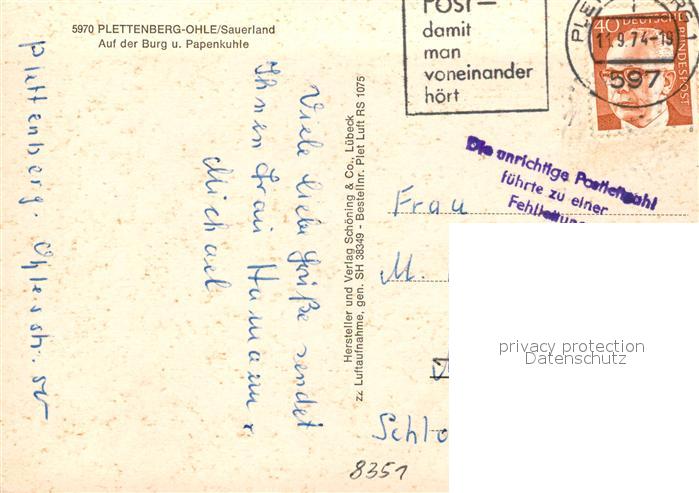 5970 PLETTENBERG-OHLE/Sauerland
Auf der Burg u. Papenkuhle
Post-
damit
man
voneinander
hört
11.9.74-19
597
40 DEUTSCHE BUNDESPOST
Die unrichtige Postleitzahl
führte zu einer
Fehlleitung
Viele liebe Grüße sendet
Ihnen Frau Hamann
Michael
Plettenberg. Ohlerstr. 50
Hersteller und Verlag Schöning & Co., Lübeck
zz Luftaufnahme, gen. SH 38349 - Bestellnr. Plet Luft RS 1075
Frau
M.
Schlo
8351
privacy protection
Datenschutz